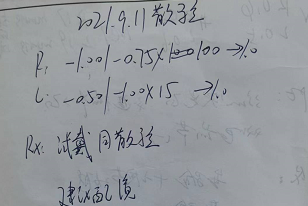 2021.9.11 散瞳验
R: -1.00/-0.75×100 → 1.0
L: -0.50/-1.00×15 → 1.0
Rx: 试戴同散验
建议配镜